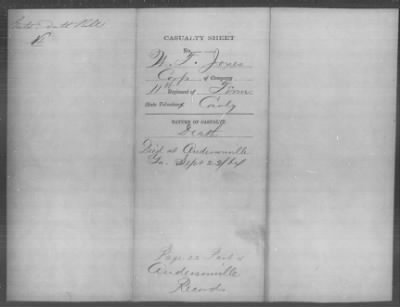 CASUALTY SHEET
No.
W. T. Jones
Corp of Company
11th Regiment of Tenn
State Volunteers Cavly
NATURE OF CASUALTY.
Death
Died at Andersonville
Ga. Sept 22/64
Page 22 Part
Andersonville
Records